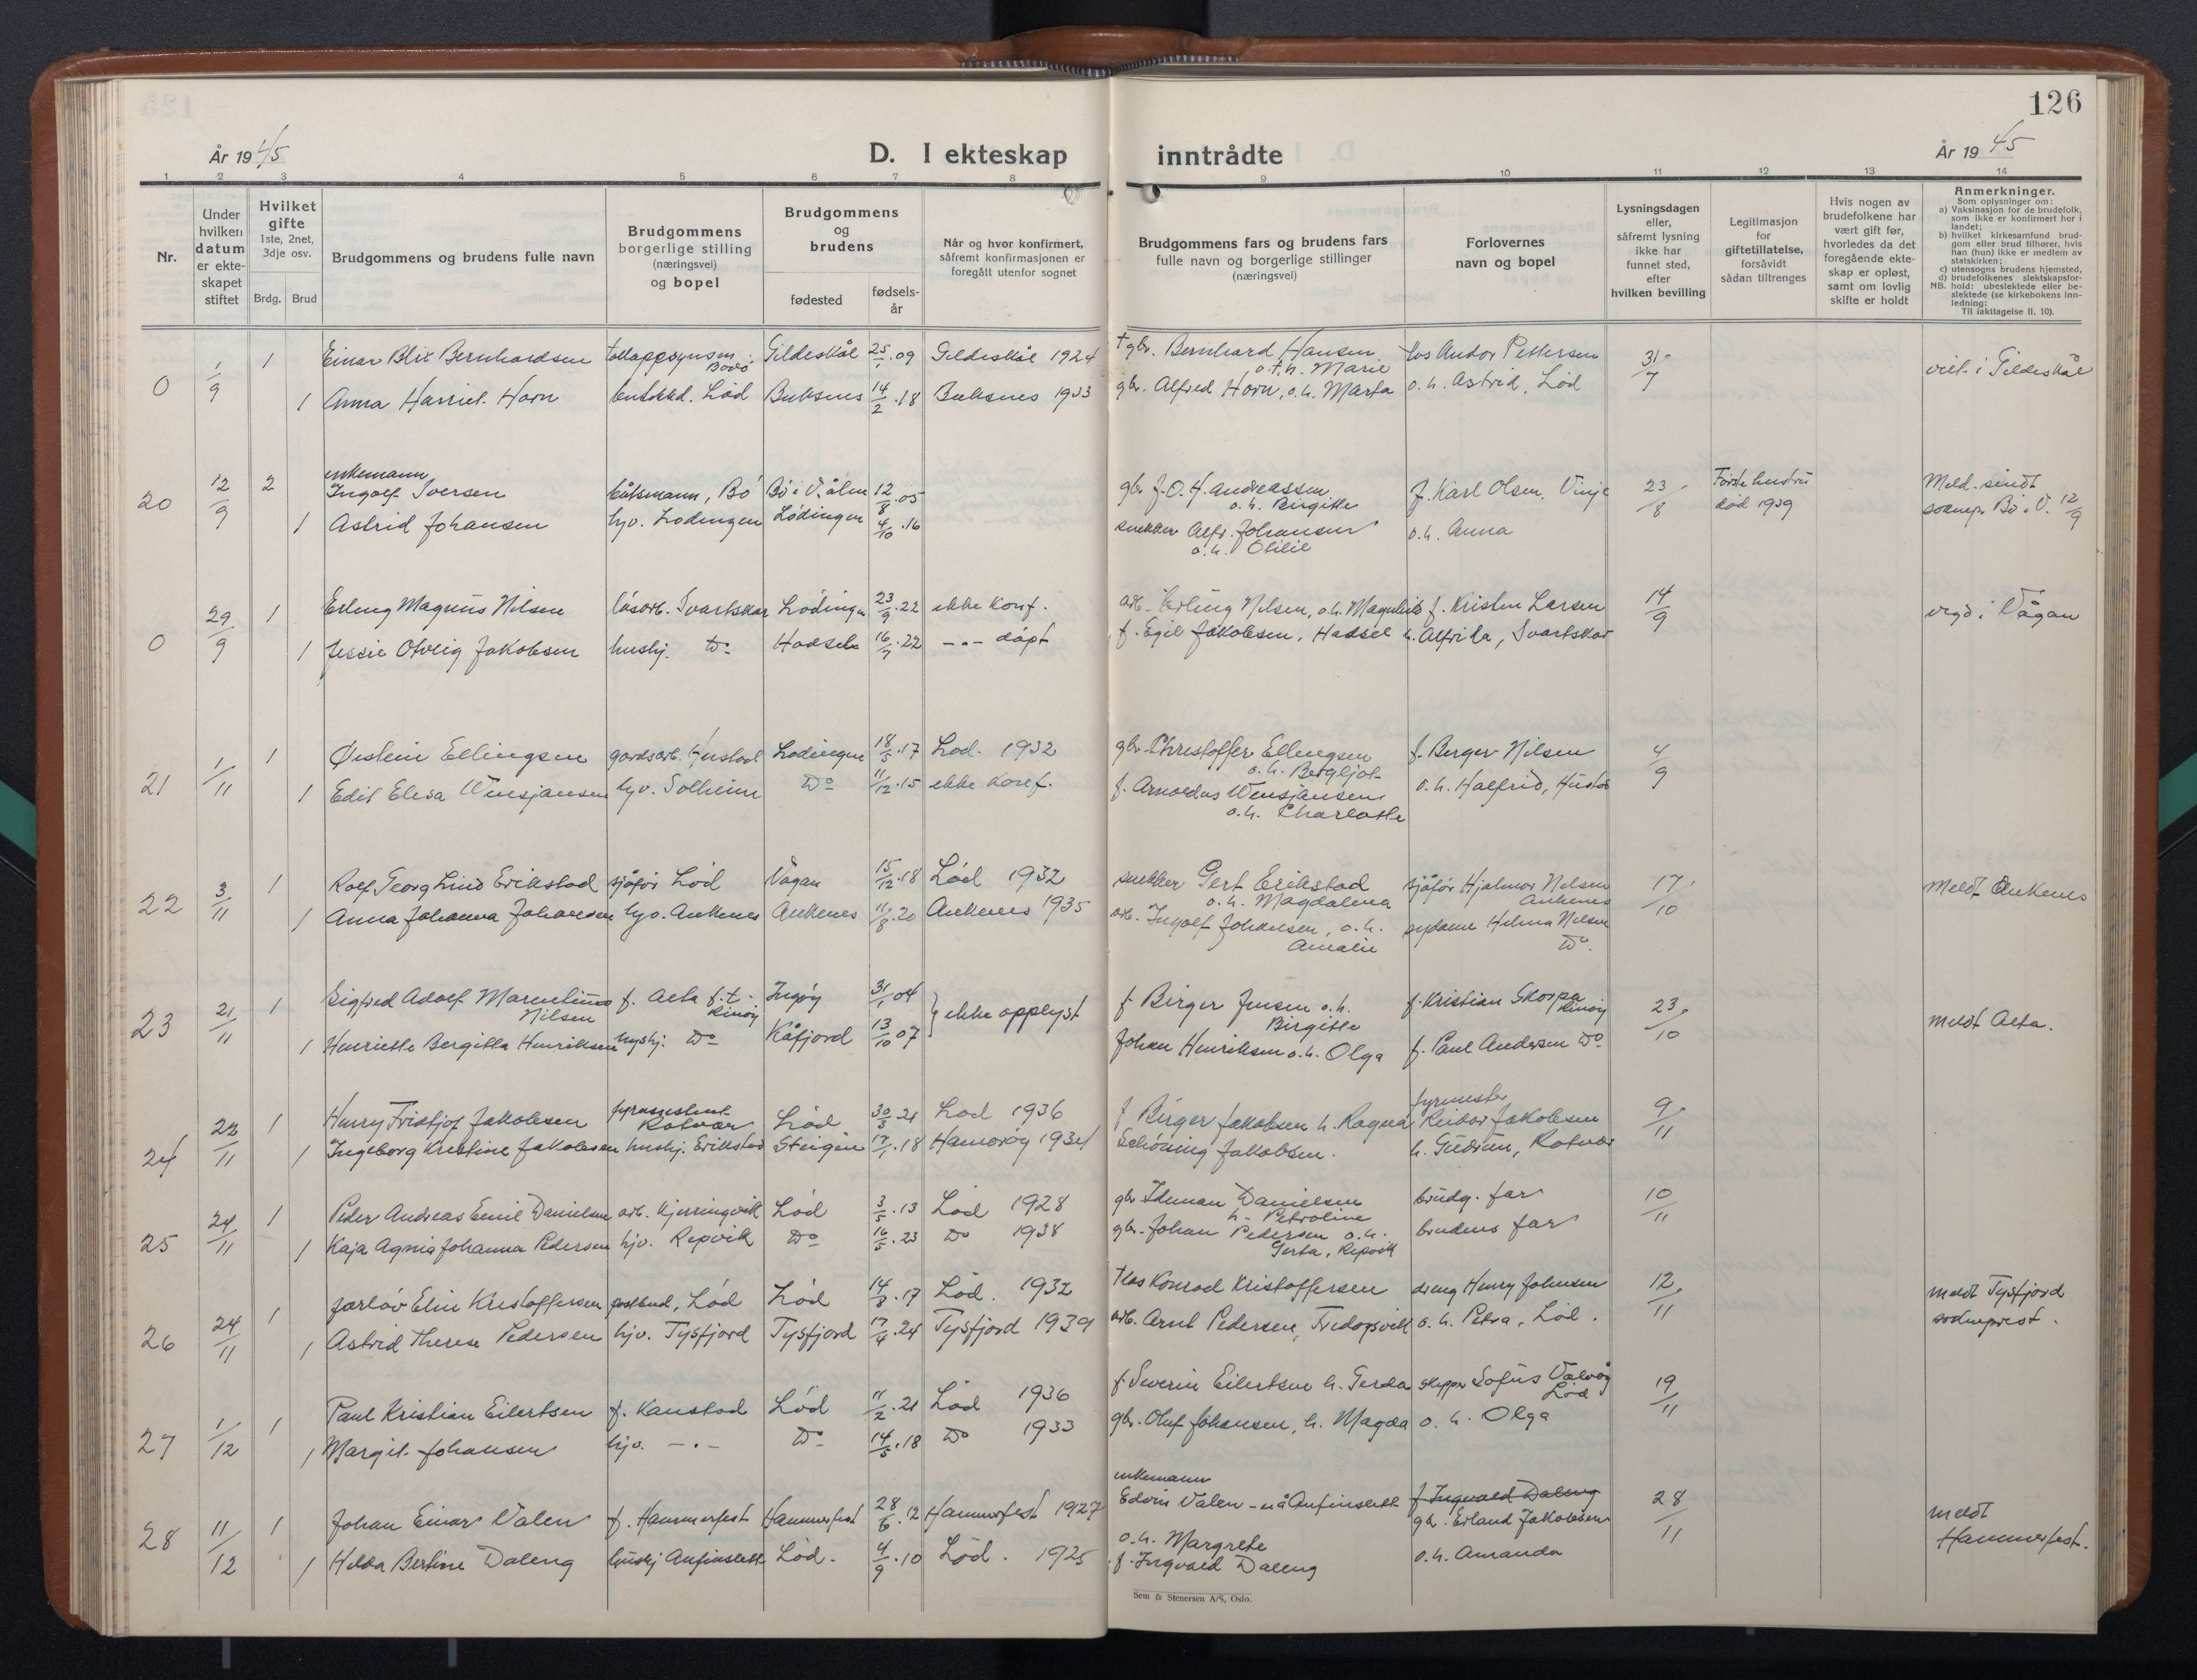 126
År 1945
D. I ekteskap inntrådte
År 1945
1 2 3 4 5 6 7 8 9 10 11 12 13 14
Nr.
Under hvilken datum er ekteskapet stiftet
Hvilket gifte
1ste, 2net, 3dje osv.
Brdg. Brud
Brudgommens og brudens fulle navn
Brudgommens borgerlige stilling (næringsvei) og bopel
Brudgommens og brudens
fødested
fødselsår
Når og hvor konfirmert, såfremt konfirmasjonen er foregått utenfor sognet
Brudgommens fars og brudens fars fulle navn og borgerlige stillinger (næringsvei)
Forlovernes navn og bopel
Lysningsdagen eller, såfremt lysning ikke har funnet sted, efter hvilken bevilling
Legitimasjon for giftetillatelse, forsåvidt sådan tiltrenges
Hvis nogen av brudefolkene har vært gift før, hvorledes da det foregående ekteskap er opløst, samt om lovlig skifte er holdt
Anmerkninger.
Som oplysninger om:
a) Vaksinasjon for de brudefolk, som ikke er konfirmert her i landet;
b) hvilket kirkesamfund brudgom eller brud tilhører, hvis han (hun) ikke er medlem av statskirken;
c) utensogns brudens hjemsted,
d) brudefolkenes slektskapsfor-
NB. hold: ubeslektede eller beslektede (se kirkebokens innledning:
Til iakttagelse II, 10).
0 1/9 1 Einar Blix Bernhardsen Bodö Gildeskål 25/1.09 Gildeskål 1924 † gbr. Bernhard Hansen o. † h. Marie hos Andor Pettersen 31/7 viet i Gildeskål
1 Anna Harriet Horn Lød Buksnes 14/2.18 Buksnes 1933 gbr. Alfred Horn, o.h. Marta o.h. Astrid, Lød
20 12/9 2 enkemann Ingolf Iversen båtsmann, Bö Bö i V.ålen 12/8.05 gbr J.O.H. Andreassen o.h. Birgitte f. Karl Olsen, Vinje 23/8 Første hustru død 1939 Meld. sendt sognepr. Bö i V. 12/9
1 Astrid Johansen hjv. Lødingen Lødingen 4/10.16 snekker Alfr. Johansen o.h. Otilie o.h. Anna
0 29/9 1 Erling Magnus Nilsen løsarb. Svartskar Lødingen 23/9.22 ikke konf. arb. Erling Nilsen, o.h. Magnhild f. Kristen Larsen 14/9 vigd i Vågan
1 Jessie Otelig Jakobsen hushj. Do Hadsel 16/7.22 -"- døpt f. Egil Jakobsen, Hadsel h. Alfrida, Svartskar
21 1/11 1 Øistein Ellingsen gardsarb. Hustad Lødingen 18/5.17 Lød. 1932 gbr. Christoffer Ellingsen o.h. Bergljot f. Berger Nilsen 4/9
1 Edit Elisa Wensjansen hjv. Solheim Do 11/12.15 ikke konf. f. Arnoldus Wensjansen o.h. Charlotte o.h. Halfrid, Hustad
22 3/11 1 Rolf Georg Lind Erikstad sjåfør Lød Vågan 15/12.18 Lød 1932 snekker Gert Erikstad o.h. Magdalena sjåfør Hjalmar Nilsen Ankenes 17/10 meldt Ankenes
1 Anna Johanna Johansen hjv. Ankenes Ankenes 11/8.20 Ankenes 1935 arb. Ingolf Johansen, o.h. Amalie sydame Helma Nilsen Do.
23 21/11 1 Sigfred Adolf Marentinus Nilsen f. Alta f.t. Rinöy Ingöy 31/1 04 } ikke opplyst f Birger Jensen o.h. Birgitte f. Kristian Skospa Rinöy 23/10 meldt Alta.
1 Henriette Bergitta Henriksen hushj. Do Kåfjord 13/10 07 Johan Henriksen o.h. Olga f. Paul Andersen Do
24 22/11 1 Henry Fridtjof Jakobsen fyrassistent Rotvær Lød 30/3.21 Lød 1936 f Birger Jakobsen h. Ragna fyrmester Reidar Jakobsen 9/11
1 Ingeborg Kristine Jakobsen hushj. Erikstad Steigen 17/1.18 Hamarøy 1934 Schöning Jakobsen. h. Gudrun, Rotvær
25 24/11 1 Peder Andreas Emil Danielsen arb. Kjerringvik Lød 3/5.13 Lød 1928 gbr Iduman Danielsen h. Petroline brudg. far 10/11
1 Kaja Agnia Johanna Pedersen hjv. Repvik Do 16/5.23 Do 1938 gbr. Johan Pedersen o.h. Gerta, Repvik brudens far
26 24/11 1 Jarlov Elin Kristoffersen postbud, Lød Lød 14/8.17 Lød. 1932 Konrad Kristoffersen dreng Henry Johnsen 12/11 meldt Tysfjord sokneprest.
1 Astrid Therese Pedersen hjv. Tysfjord Tysfjord 17/4.24 Tysfjord 1939 arb. Arnt Pedersen, o.h. Petra, Lød.
27 1/12 1 Paul Kristian Eilertsen f. Kanstad Lød 11/2.21 Lød 1936 f Severin Eilertsen h. Gerda skipper Sofus Valvåg Lød 19/11
1 Margit Johansen hjv. -"- Do 14/5.18 Do 1933 gbr. Oluf Johansen, h. Magda o.h. Olga
28 11/12 1 Johan Einar Valen f. Hammerfest Hammerfest 28/6.12 Hammerfest 1927 enkemann Edvin Valen - nå Anfinslett o.h. Margrete f Ingvald Daleng gbr. Erland Jakobsen 28/11 meldt Hammerfest.
1 Helda Bertine Daleng hushj Anfinslett Lød. 4/9.10 Lød. 1925 f. Ingvald Daleng o.h. Amanda
Sem & Stenersen A/S, Oslo.